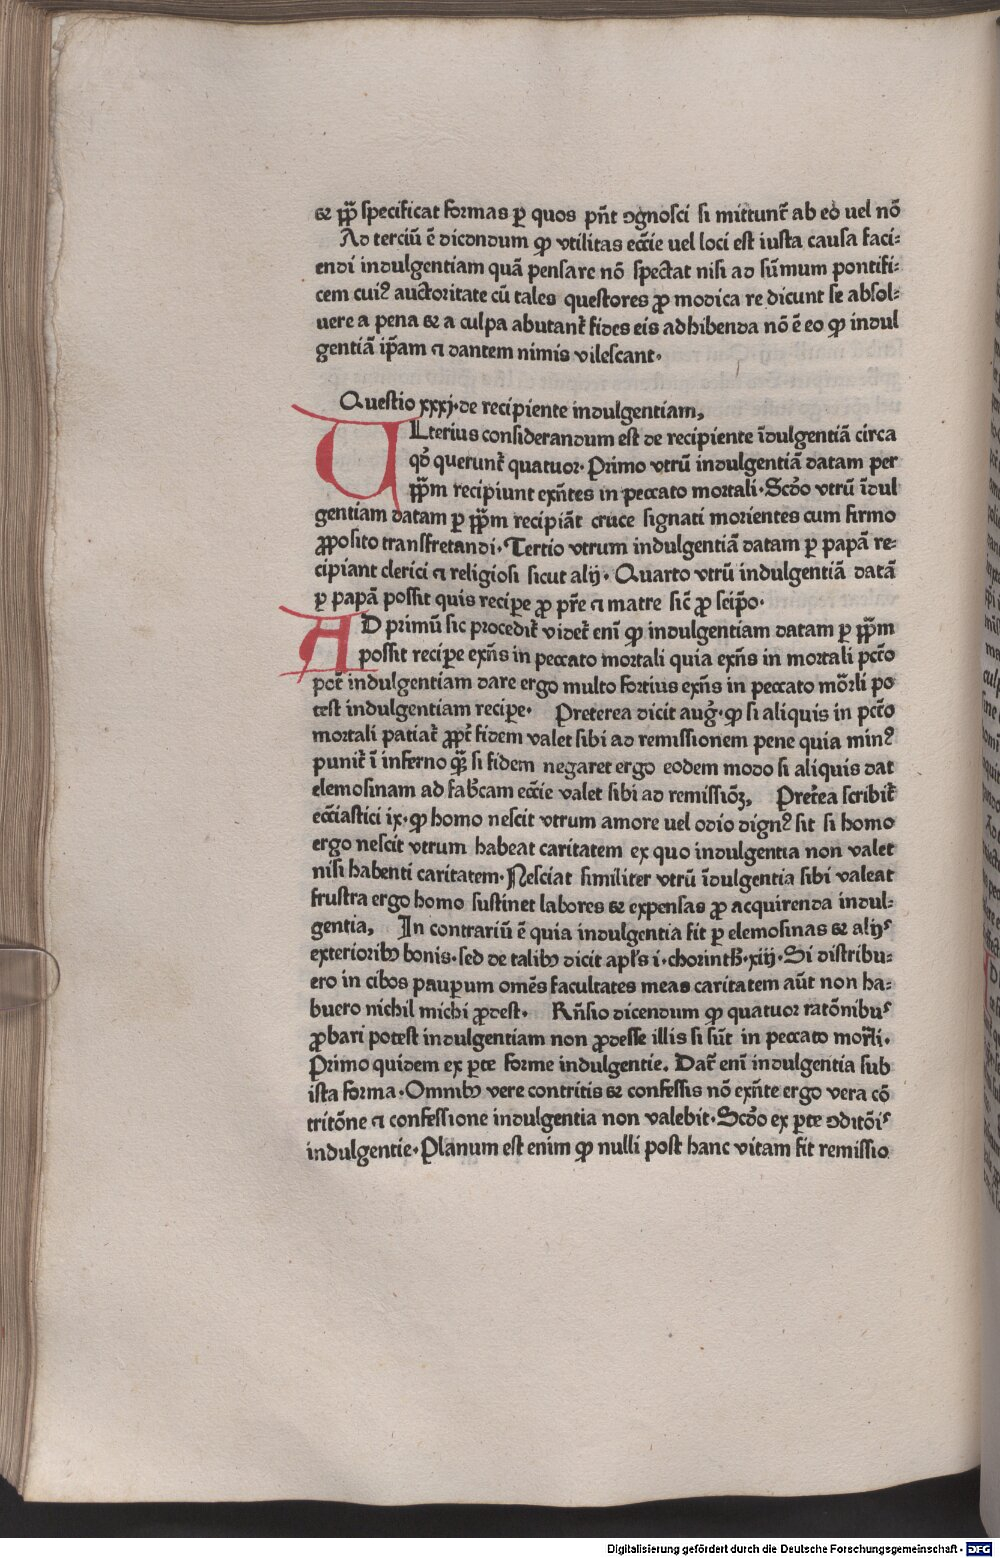 ⁊ ꝓp̄m̄ specificat formas ꝑ quos pn̄t ꝯgnosci si mittunt᷑ ab eo uel nō
Ad terciū ē dicondum ꝙ vtilitas ecc̄ie uel loci est iusta causa faci⸗
endi indulgentiam quā pensare nō spectat nisi ad sūmum pontifi⸗
cem cuiꝰ auctoritate cū tales questores ꝓ modica re dicunt se absol⸗
uere a pena ⁊ a culpa abutant᷑ fides eis adhibenda nō ē eo ꝙ indul
gentiā ip̄am ⁊ dantem nimis vilescant·
Questio xxxj·de recipiente indulgentiam,
ULterius considerandum est de recipiente īdulgentiā circa
qd̛ querunt᷑ quatuor· Primo vtrū indulgentiā datam per
pp̄m recipiunt exn̄tes in peccato mortali·Scd̛o vtrū īdul
gentiam datam ꝑ pp̄m recipiāt cruce signati morientes cum firmo
ꝓposito transfretandi· Tertio vtrum indulgentiā datam ꝑ papā re⸗
cipiant clerici ⁊ religiosi sicut alij· Quarto vtrū indulgentiā datā
ꝑ papā possit quis recipe ꝓ pr̄e ⁊ matre sic̄ ꝓ seip̄o·
AD primū sic procedit᷑ videt᷑ enī ꝙ indulgentiam datam ꝑ pp̄m
possit reciꝑe exn̄s in peccato mortali quia exn̄s in mortali pcc̄o
pot᷑ indulgentiam dare ergo multo fortius exn̄s in peccato mōrli po
test indulgentiam reciꝑe· Preterea dicit aug̛·ꝙ si aliquis in pcc̄o
mortali patiat᷑ ꝓpt᷑ fidem valet sibi ad remissionem pene quia minꝰ
punit᷑ ī inferno qᷓ si fidem negaret ergo eodem modo si aliquis dat
elemosinam ad fab̛cam ecc̄ie valet sibi ad remissiōꝫ, Pret᷑ea scribit᷑
ecc̄iastici ix·ꝙ homo nescit vtrum amore uel odio dignꝰ sit si homo
ergo nescit vtrum habeat caritatem ex quo indulgentia non valet
nisi habenti caritatem·Nesciat similiter vtrū īdulgentia sibi valeat
frustra ergo homo sustinet labores ⁊ expensas ꝓ acquirenda indul⸗
gentia, In contrariū ē quia indulgentia fit ꝑ elemosinas ⁊ alijˢ
exterioribꝫ bonis·sed de talibꝫ dicit apl̛s i·chorinth̛·xiij·Si distribu⸗
ero in cibos pauꝑum omēs facultates meas caritatem aūt non ha⸗
buero nichil michi ꝓdest· Rn̄sio dicendum ꝙ quatuor ratōnibuˢ
ꝓbari potest indulgentiam non ꝓdesse illis si sūt in peccato mor̄li·
Primo quidem ex ꝑte forme indulgentie. Dat᷑ enī indulgentia sub
ista forma·Omnibꝫ vere contritis ⁊ confessis nō exn̄te ergo vera cō
tritōne ⁊ confessione indulgentia non valebit·Scd̛o ex ꝑte ꝯditōiˢ
indulgentie·Planum est enim ꝙ nulli post hanc vitam fit remissio
Digitalisierung gefördert durch die Deutsche Forschungsgemeinschaft · DFG